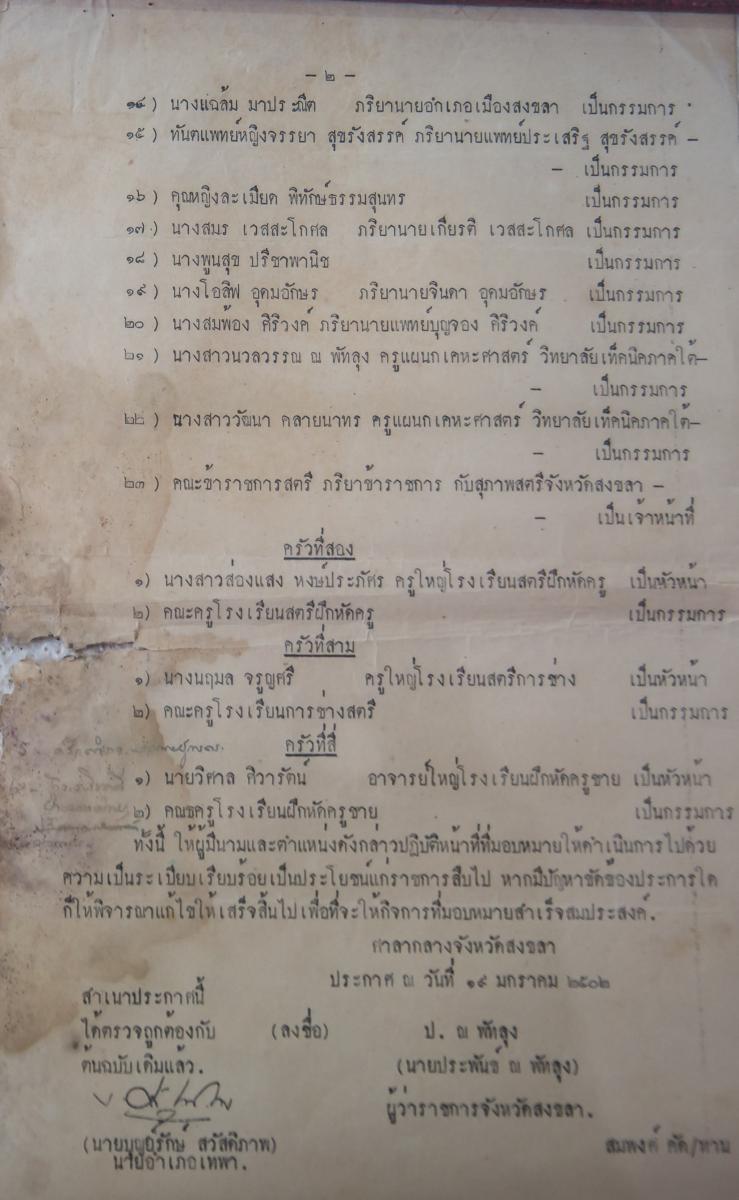 - ๒ -
๑๔) นางแฉล้ม มาประณีต ภริยานายอำเภอเมืองสงขลา เป็นกรรมการ
๑๕) ทันตแพทย์หญิงจรรยา สุขรังสรรค์ ภริยานายแพทย์ประเสริฐ สุขรังสรรค์ -
- เป็นกรรมการ
๑๖) คุณหญิงละเมียด พิทักษ์ธรรมสุนทร เป็นกรรมการ
๑๗) นางสมร เวสสะโกศล ภริยานายเกียรติ เวสสะโกศล เป็นกรรมการ
๑๘) นางพูนสุข ปรีชาพานิช เป็นกรรมการ
๑๙) นางโอสิฟ อุดมอักษร ภริยานายจินดา อุดมอักษร เป็นกรรมการ
๒๐) นางสมพ้อง ศิริวงศ์ ภริยานายแพทย์บุญจอง ศิริวงศ์ เป็นกรรมการ
๒๑) นางสาวนวลวรรณ ณ พัทลุง ครูแผนกเคหะศาสตร์ วิทยาลัยเท็คนิคภาคใต้-
- เป็นกรรมการ
๒๒) นางสาววัฒนา คลายนาทร ครูแผนกเคหะศาสตร์ วิทยาลัยเท็คนิคภาคใต้-
- เป็นกรรมการ
๒๓) คณะข้าราชการสตรี ภริยาข้าราชการ กับสุภาพสตรีจังหวัดสงขลา -
- เป็นเจ้าหน้าที่
ครัวที่สอง
๑) นางสาวส่องแสง หงษ์ประภัศร ครูใหญ่โรงเรียนสตรีฝึกหัดครู เป็นหัวหน้า
๒) คณะครูโรงเรียนสตรีฝึกหัดครู เป็นกรรมการ
ครัวที่สาม
๑) นางนฤมล จรูญศรี ครูใหญ่โรงเรียนสตรีการช่าง เป็นหัวหน้า
๒) คณะครูโรงเรียนการช่างสตรี เป็นกรรมการ
ครัวที่สี่
๑) นายวิศาล ศิวารัตน์ อาจารย์ใหญ่โรงเรียนฝึกหัดครูชาย เป็นหัวหน้า
๒) คณะครูโรงเรียนฝึกหัดครูชาย เป็นกรรมการ
ทั้งนี้ ให้ผู้มีนามและตำแหน่งดังกล่าวปฏิบัติหน้าที่ที่มอบหมายให้ดำเนินการไปด้วย
ความเป็นระเบียบเรียบร้อยเป็นประโยชน์แก่ราชการสืบไป หากมีปัญหาขัดข้องประการใด
ก็ให้พิจารณาแก้ไขให้เสร็จสิ้นไปเพื่อที่จะให้กิจการที่มอบหมายสำเร็จสมประสงค์.
ศาลากลางจังหวัดสงขลา
ประกาศ ณ วันที่ ๑๙ มกราคม ๒๕๐๒
สำเนาประกาศนี้
ได้ตรวจถูกต้องกับ (ลงชื่อ) ป. ณ พัทลุง
ต้นฉบับเดิมแล้ว. (นายประพันธ์ ณ พัทลุง)
ผู้ว่าราชการจังหวัดสงขลา.
(นายบุญย์รักษ์ สวัสดิภาพ) สมพงค์ คัด/ทาน
นายอำเภอเทพา.